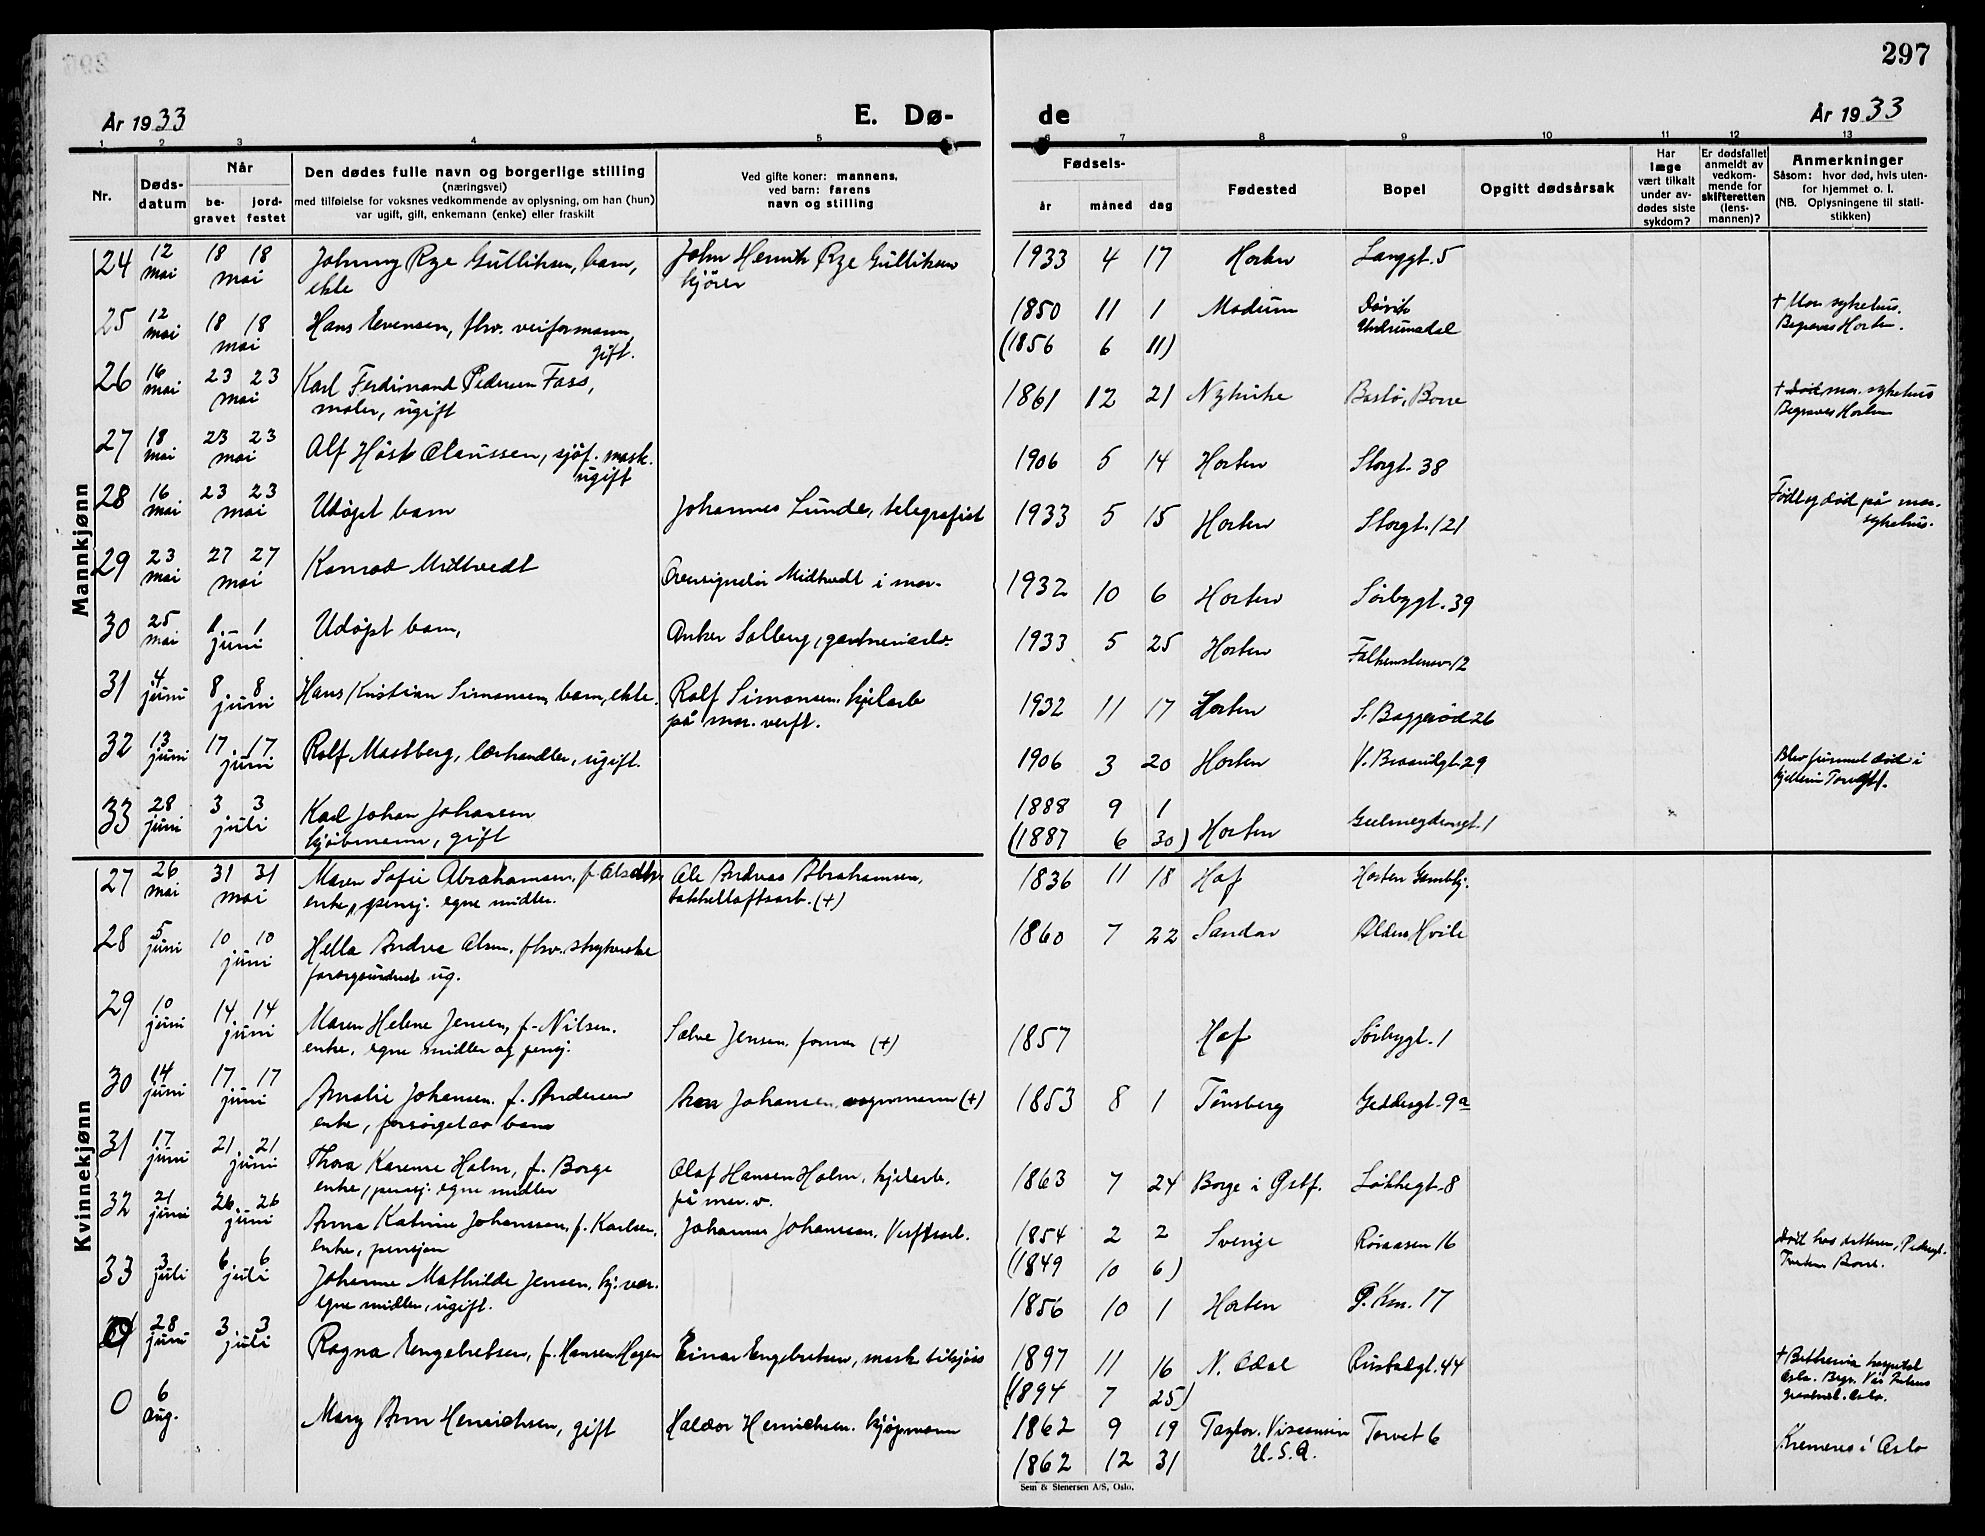 297
År 1933
E. Dø-
de
År 1933
1 2 3 4 5 6 7 8 9 10 11 12 13
Nr.
Døds-
datum
Når
be-
gravet
jord-
festet
Den dødes fulle navn og borgerlige stilling
(næringsvei)
med tilføielse for voksnes vedkommende av oplysning, om han (hun)
var ugift, gift, enkemann (enke) eller fraskilt
Ved gifte koner: mannens,
ved barn: farens
navn og stilling
Fødsels-
år måned dag
Fødested
Bopel
Opgitt dødsårsak
Har
læge
vært tilkalt
under av-
dødes siste
sykdom?
Er dødsfallet
anmeldt av
vedkom-
mende for
skifteretten
(lens-
mannen)?
Anmerkninger
Såsom: hvor død, hvis uten-
for hjemmet o. l.
(NB. Oplysningene til stati-
stikken)
Mannkjønn
24 12 mai 18 18 mai Johnny Rye Gulliksen, barn, ekte John Henrik Rye Gulliksen kjører 1933 4 17 Horten Langgt. 5
25 12 mai 18 18 mai Hans Evensen, fhv. veiformann, gift. 1850 11 1 Modum Undrumsdal † Mar. sykehus. Begraves Horten.
(1856 6 11)
26 16 mai 23 23 mai Karl Ferdinand Pedersen Foss, maler, ugift 1861 12 21 Nykirke Bastø, Borre † død mar. sykehus Begraves Horten
27 18 mai 23 23 mai Alf Høst Claussen, sjøf. mask. ugift 1906 5 14 Horten Storgt. 38
28 16 mai 23 23 mai Udøpt barn Johannes Lunde, telegrafist 1933 5 15 Horten Storgt. 121 Født og død på mar. sykehus.
29 23 mai 27 27 mai Konrad Midtvedt Midtvedt i mar. 1932 10 6 Horten Sørbygt. 39
30 25 mai 1 1 juni Udøpt barn, Anker Solberg, gartneriarb. 1933 5 25 Horten Falkenstensv. 12
31 4 juni 8 8 juni Hans Kristian Simonsen, barn, ekte. Rolf Simonsen. kjelarb på mar. verft. 1932 11 17 Horten S. Baggerød 26
32 13 juni 17 17 juni Rolf Mastberg, lærhandler, ugift. 1906 3 20 Horten V. Braarudgt. 29 Blev funnet død i kjelleren Torvgt 1.
33 28 juni 3 3 juli Karl Johan Johansen kjøbmann, gift 1888 9 1 Horten
(1887 6 30)
Kvinnekjønn
27 26 mai 31 31 mai Maren Sofie Abrahamsen, f. enke, pensj. egne midler. Ole Andreas Abrahamsen, takkelloftsarb. (+) 1836 11 18 Hof Horten Gamlehj.
28 5 juni 10 10 juni Hella Andrea Olsen. fhv. strykerske ug. 1860 7 22 Sandar Alders Hvile
29 10 juni 14 14 juni Maren Helene Jensen, f. Nilsen. enke. egne midler og pensj. Salve Jensen. former (+) 1857 Hof Sørbygt. 1
30 14 juni 17 17 juni Amalie Johansen. f. Andersen enke, forsørget av barn Johansen. vognmann (+) 1853 8 1 Tønsberg Geddesgt. 9a
31 17 juni 21 21 juni Thora Karense Holm, f. Borge enke, pensj. egne midler Olaf Hansen Holm, kjelarb. på mar. v. 1863 7 24 Borge i Østf. Løkkegt. 8
32 21 juni 26 26 juni Anna Katrine Johanssen, f. Karlsen. enke, pensjon Johannes Johanssen. Verftsarb. 1854 2 2 Sverige Røraasen 16 død hos datteren,
(1849 10 6)
33 3 juli 6 6 juli Johanne Mathilde Jensen. egne midler, ugift. 1856 10 1 Horten 17
0 28 juni 3 3 juli Ragna Engebretsen, f. Hansen Hagen Einar Engebretsen, mask. 1897 11 16 N. Odal Rustadgt. 44 † Bethania hospital Oslo. Begr. Vår Frelsers gravlund. Oslo.
(1894 7 25)
0 6 Aug. Mary Ann Henrichsen, gift Haldor Henrichsen. kjøpmann 1862 9 19 Taylor. Visconsin U.S.A. Torvet 6 Kremeres i Oslo
1862 12 31
Sem & Stenersen A/S, Oslo.